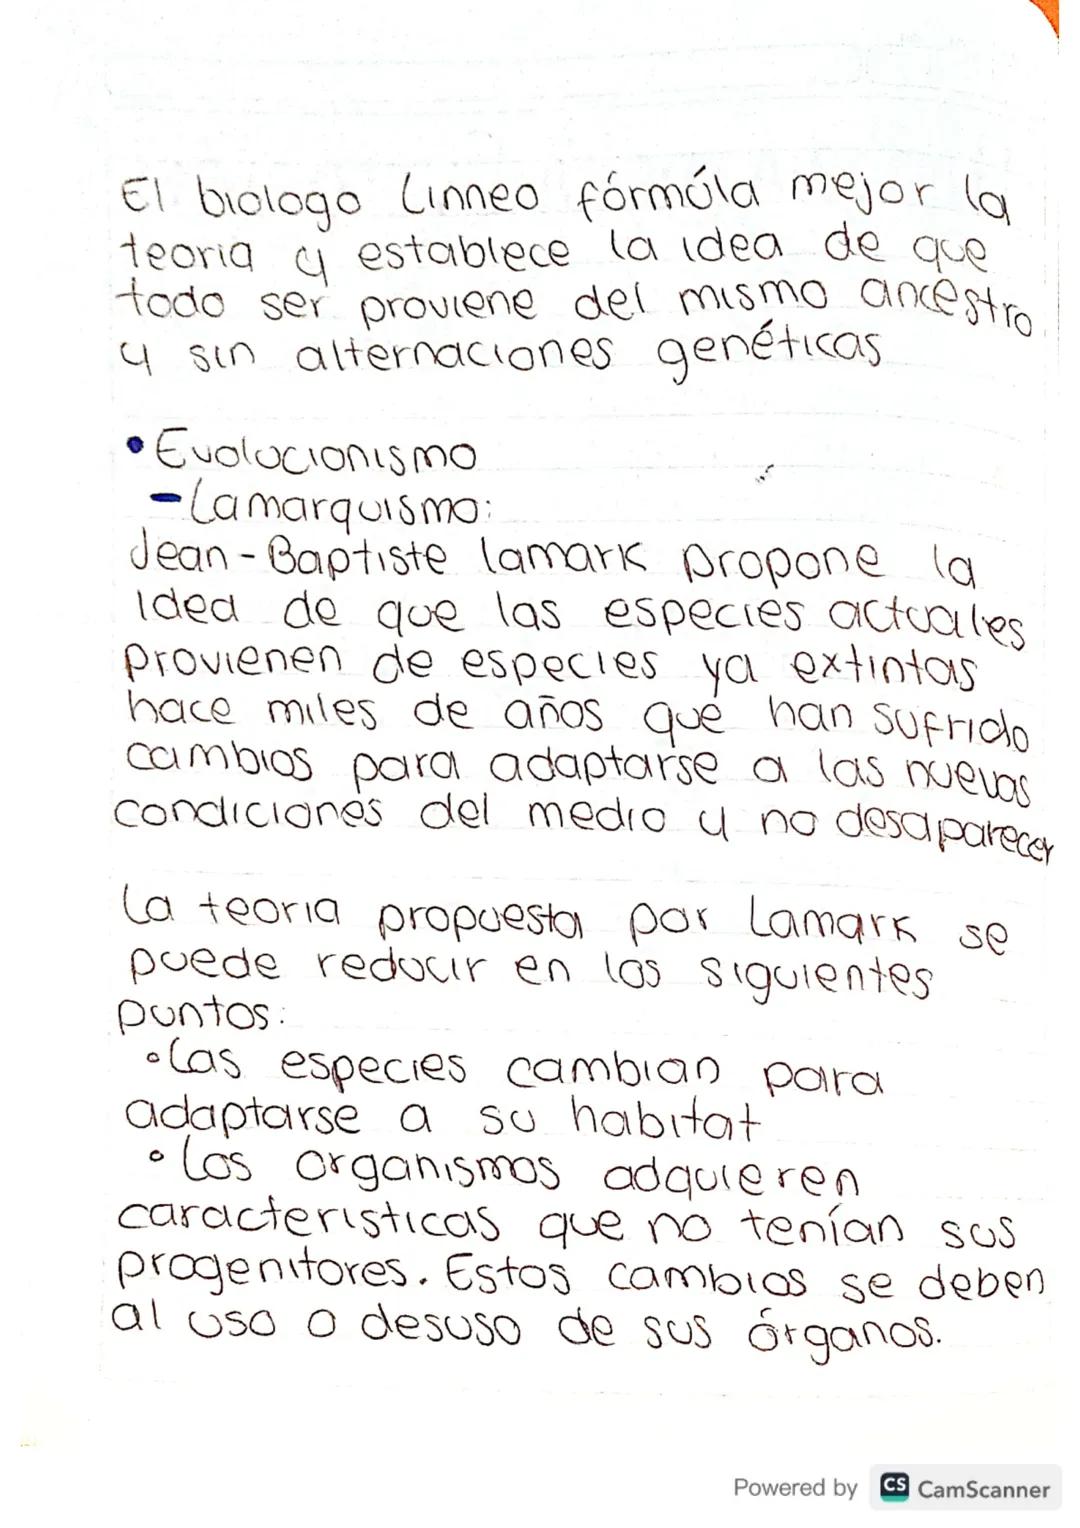 El biologo Linneo fórmúla mejor la
teoria y establece la idea de que
todo ser proviene del mismo ancestro
y sin alternaciones genéticas
• Evolucionismo
- Lamarquismo:
Jean-Baptiste lamark propone la
idea de que las especies actuales
provienen de especies ya extintas
hace miles de años que han sufrido
cambios para adaptarse a las nuevas
condiciones del medio y no desaparecer
La teoria propuesta por Lamark se
puede reducir en los siguientes
puntos:
• Las especies cambian para
adaptarse a su habitat
• Los organismos adquieren
caracteristicas que no tenían sus
progenitores. Estos cambios se deben
al uso o desuso de sus órganos.
Powered by CS CamScanner